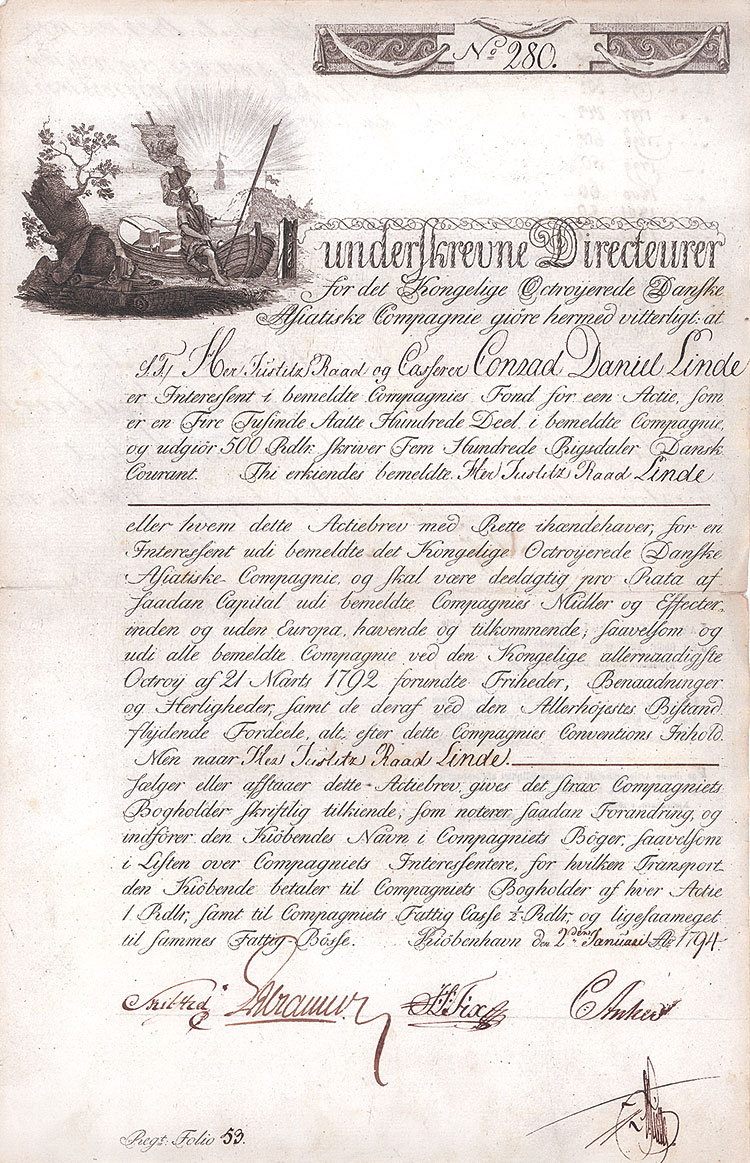 No 280.
underskrevne Directeurer
for det Kongelige Octroijerede Danske
Asiatiske Compagnie giöre hermed vitterligt: at
S.T. Her Justitz Raad og Casserer Conrad Daniel Linde
er Interessent i bemeldte Compagnies Fond for een Actie, som
er en Fire Tusinde Aatte Hundrede Deel i bemeldte Compagnie,
og udgiör 500 Rdlr. skriver Fem Hundrede Rigsdaler Dansk
Courant. Thi erkiendes bemeldte Her Justitz Raad Linde
eller hvem dette Actiebrev med Rette ihændehaver, for en
Interessent udi bemeldte det Kongelige Octroijerede Danske
Asiatiske Compagnie, og skal være deelagtig pro Rata af
saadan Capital udi bemeldte Compagnies Midler og Effecter,
inden og uden Europa, havende og tilkommende; saavelsom og
udi alle bemeldte Compagnie ved den Kongelige allernaadigste
Octroij af 21 Marts 1792 forundte Friheder, Benaadninger
og Herligheder, samt de deraf ved den Allerhöjestes Bistand
flijdende Fordeele, alt efter dette Compagnies Conventions Inhold.
Men naar Her Justitz Raad Linde
sælger eller afstaaer dette Actiebrev, gives det strax Compagniets
Bogholder skriftlig tilkiende; som noterer saadan Forandring, og
indförer den Kiöbendes Navn i Compagniets Böger, saavelsom
i Listen over Compagniets Interessentere, for hvilken Transport
den Kiöbende betaler til Compagniets Bogholder af hver Actie
1 Rdlr, samt til Compagniets Fattig Casse ½ Rdlr, og ligesaameget
til sammes Fattig-Bösse. Kiöbenhavn den 2den Januarii Ao 1794.
Fix C Anker
Regt: Folio 53.